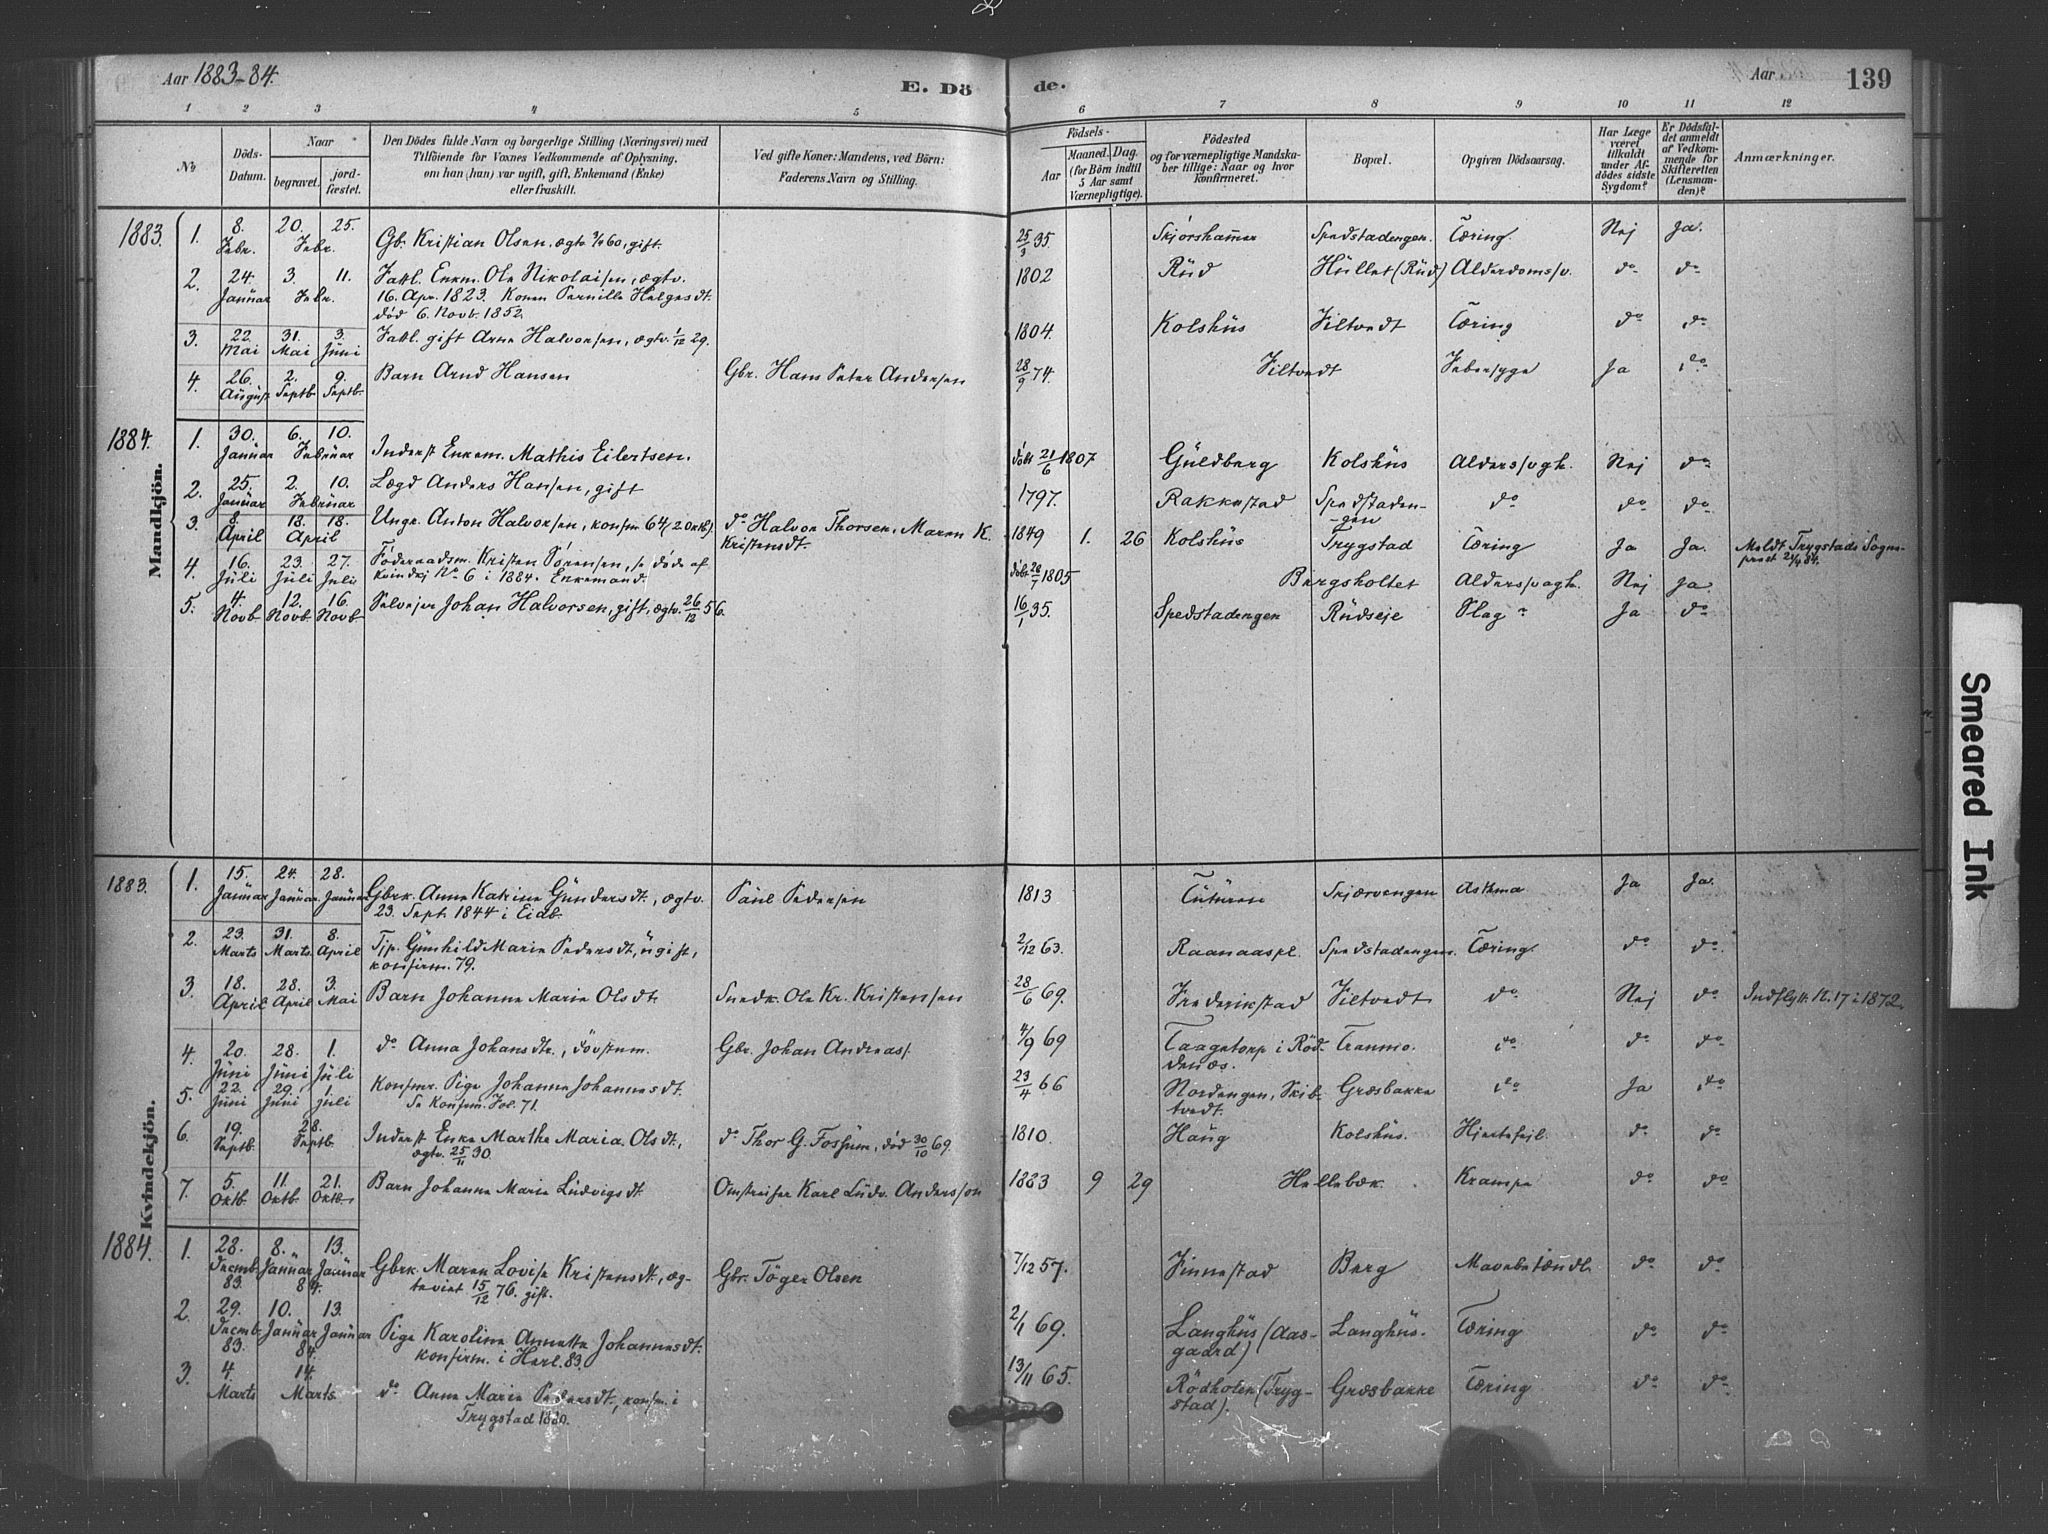 Aar 1883-84.
E. Dö
de.
Aar
139
1 2 3 4 5 6 7 8 9 10 11 12
No
Döds-Datum.
Naar
begravet.
jordfæstet.
Den Dödes fulde Navn og borgerlige Stilling (Næringsvei) med
Tilföiende for Voxnes Vedkommende af Oplysning,
om han (hun) var ugift, gift, Enkemand (Enke)
eller fraskilt.
Ved gifte Koner: Mandens, ved Börn:
Faderens Navn og Stilling.
Födsels-
Aar
Maaned. Dag.
(for Börn indtil
5 Aar samt
Værnepligtige).
Födested
og for værnepligtige Mandska-
ber tillige: Naar og hvor
konfirmeret.
Bopæl.
Opgiven Dödsaarsag.
Har Læge
været
tilkaldt
under Af-
dödes sidste
Sygdom?
Er Dödsfal-
det anmeldt
af Vedkom-
mende for
Skifteretten
(Lensman-
den)?
Anmærkninger.
Mandkjön.
1883. 1. 8. Febr. 20. 25. Febr. Gbr. Kristian Olsen, ægtv 60, gift. 25/3 35. Skjørshammer Spedstadengen. Tæring. Nej Ja.
2. 24. Januar 3 11. Febr. Fattl. Enkem. Ole Nikolaisen, ægtv. 1802 Rüd Hüllet (Rüd) Alderdomssv. do do
16. Apr. 1823. Konen Pernille Helgesdt.
död 6. Novb. 1852.
3. 22. Mai 31. Mai 3. Jüni Fattl. gift Arne Halvorsen, ægtv. 1/12 29. 1804. Kolshüs Filtvedt Tæring do do
4. 26. Aügüst 2. Septb 9. Septb. Barn Arnd Hansen Gbr. Hans Peter Andersen 28/9 74. Filtvedt Febersyge Ja do
1884. 1. 30. Janüar 6. 10. Febrüar Inderst Enkem. Mathis Eilertsen. döbt 21/6 1807 Güldberg Kolshüs Alderssvagh. Nej do
2. 25. Janüar 2. 10. Febrüar Lægd Anders Hansen, gift 1797. Rakkestad Spedstaden-
gen do do do
3. 8. April 18. 18. April Ungk. Anton Halvorsen, konfm 64 (2 oktb). do Halvor Thorsen, Maren K.
Kristensdt. 1849 1. 26 Kolshüs Trygstad Tæring Ja Ja. Meldt Trygstads Sogne-
prest 21/4 84.
4. 16. Jüli 23. Jüli 27. Juli Föderaadsm. Kristen Sørensen, se døde af
kvindekj No 6 i 1884. Enkemand. döbt 20/7 1805 Bergsholtet Alderssvagh. Nej Ja.
5. 4. Novb. 12. Novb. 16. Novb Selvejer Johan Halvorsen, gift, ægtv. 26/12 56. 16/1 35. Spedstadengen Rüdseje Slag Ja do
Kvindekjön.
1883. 1. 15. Janüar 24. Janüar. 28. Janüar Gbrk. Anne Katrine Gündersdt., ægtv.
23. Sept. 1844 i Eidb. Paul Pedersen 1813 Tütüren Skjærvengen Asthma Ja Ja.
2. 23. Marts 31. Marts. 8. April Tjp. Günhild Marie Pedersdt., ügift,
konfirm. 79. 2/12 63. Raanaaspl. Spedstadengen. Tæring. do do
3. 18. April 28. April 3. Mai Barn Johanne Marie Olsdt. Snedk. Ole Kr. Kristensen 28/6 69. Frederikstad Filtvedt do Nej do Indflytt. N. 17 i 1872.
4. 20. Jüni 28. Jüni 1. Jüli do Anna Johansdtr., døvstum. Gbr. Johan Andreass. 4/9 69 Taagetorp i Röd-
denæs. Tranmo. do do do
5. 22. Jüni 29. Jüni 1 jüli Konfmr. Pige Johanne Johannesdt.
Se Konfirm. Fol. 71. 23/4 66 Nordengen, Skib-
tvedt. Græsbakke do Ja do
6. 19. Septb. 28. Septb. Inderst Enke Marthe Maria Olsdt.,
ægtv. 25/11 30. do Thor G. Fossum, död 30/10 69. 1810. Haüg Kolshüs. Hjertefejl. do do
7. 5. Oktb. 11. Oktb. 21. Oktb. Barn Johanne Marie Lüdvigsdt. Omstreifer Karl Lüdv. Andersson 1883 9 29 Hellebæk. Krampe do do
1884. 1. 28. Decmb. 83 8. Janüar 84. 13. Janüar Gbrk. Maren Lovise Kristensdt., æg-
teviet 15/12 76. gift. Gbr. Töger Olsen 7/12 57. Finnestad Berg Mavebetændl. do do
2. 29. Decmb. 83. 10. Janüar 84. 13. Janüar Pige Karoline Annette Johannesdt.
konfirm. i Herl. 83. 2/1 69. Langhüs (Aas-
gaard) Langhüs. Tæring do do
3. 4. Marts 14. Marts do Anne Marie Pedersdt., konfm. i
Trygstad 1880. 13/11 65. Rödholen (Tryg-
stad). Græsbakke Tæring do do
Smeared Ink